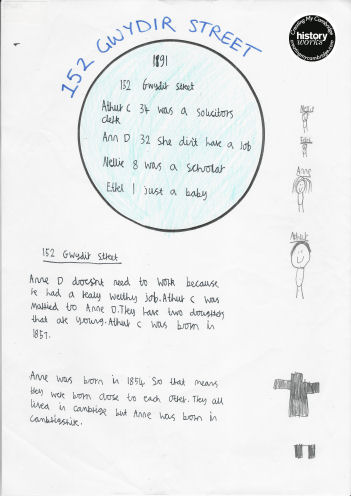 152 GWYDIR STREET
Creating My Cambridge
history
works
creatingmycambridge.com
1891
152 Gwydir Street
Arthur C 34 was a solicitors
clerk
Ann D 32 She dis't have a Job
Nellie 8 was a scholar
Ethel 1 just a baby
Nellie
Ethel
Anne
Arthur
152 Gwydir Street
Anne D doesn't need to work because
he had a realy welthy Job. Arthur C was
married to Anne D. They have two doughters
that are young. Arthur C was born in
1857.
Anne was born in 1854 So that means
they were born close to each other. They all
lived in cambrige but Anne was born in